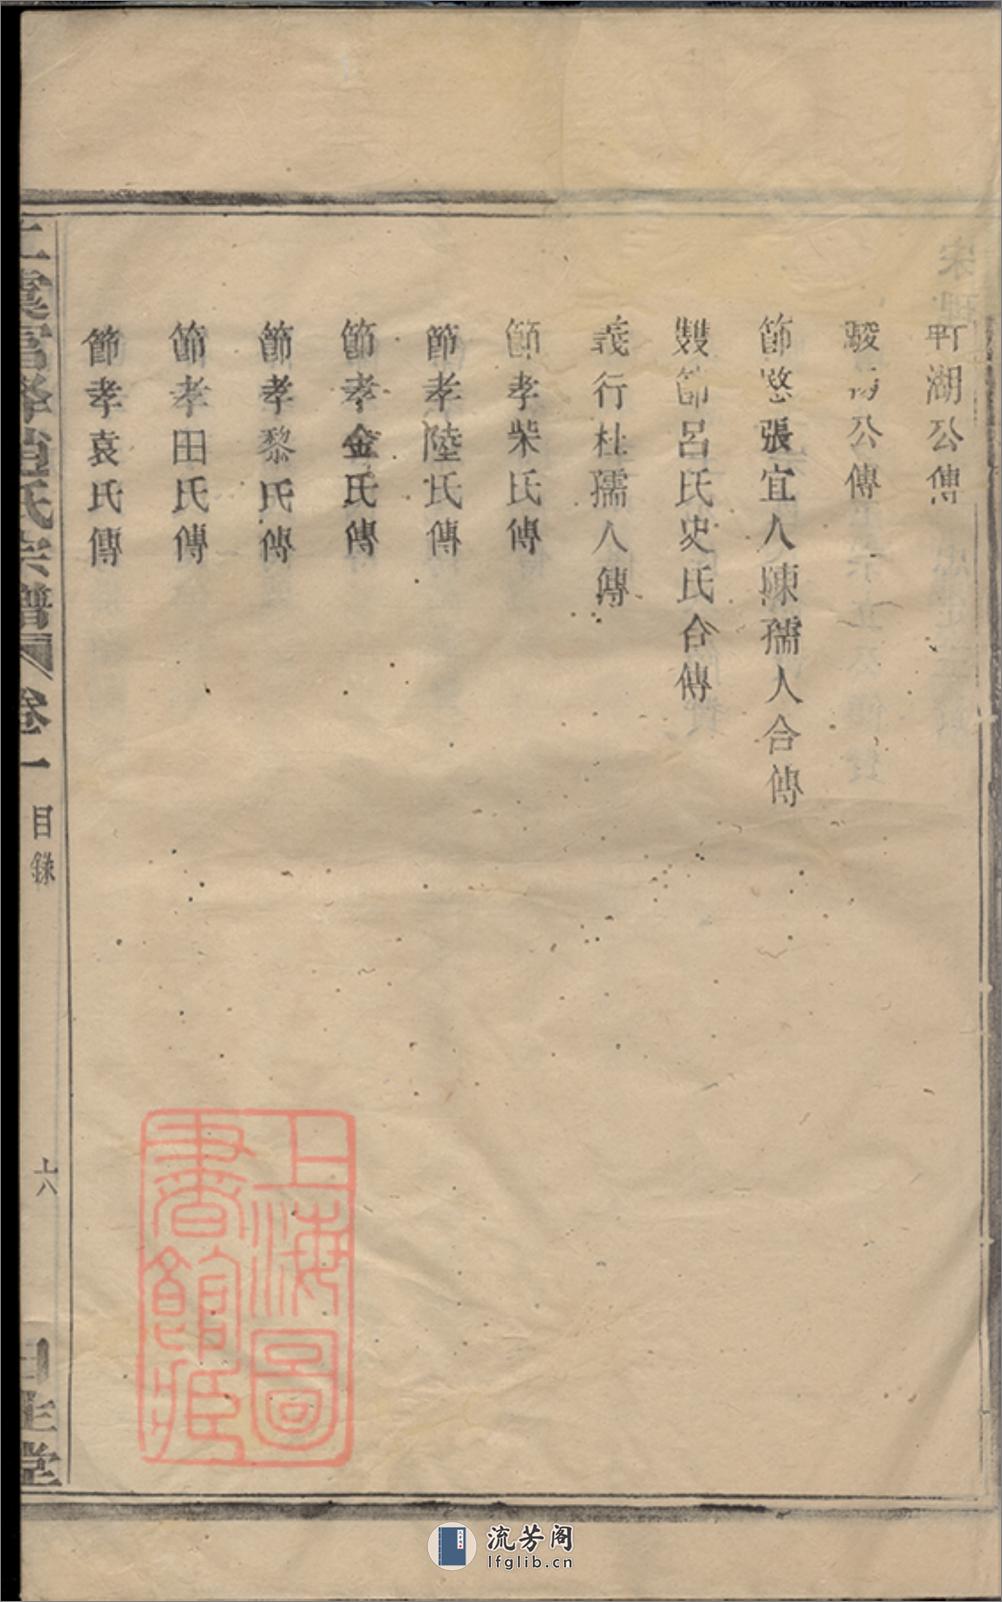 湖公傳
駿 公傳
節慜張宜人陳孺人合傳
雙節呂氏史氏合傳
義行杜孺人傳
節孝柴氏傳
節孝陸氏傳
節孝金氏傳
節孝黎氏傳
節孝田氏傳
節孝袁氏傳
虞富峰趙氏宗譜 卷一 目錄 六 堂
上海圖書館藏
流芳阁
lfglib.cn